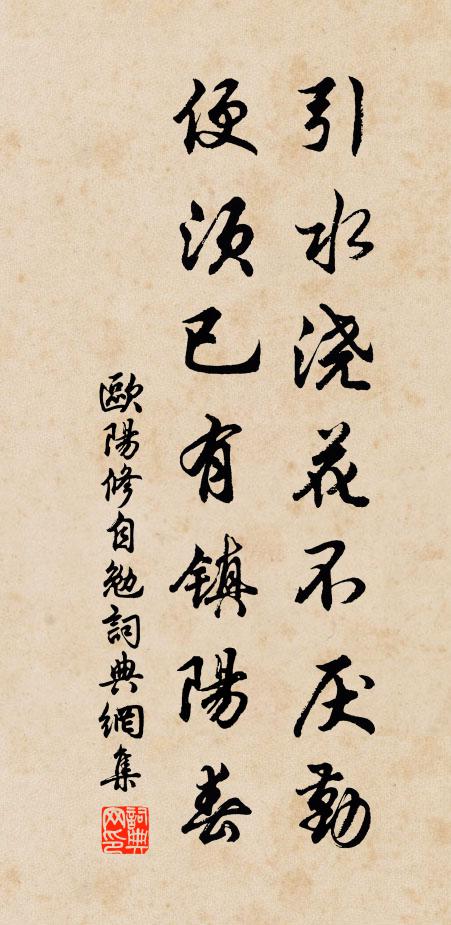 引水浇花不厌勤
便须已有镇陽春
歐陽修自勉詞典網集
詞典網印